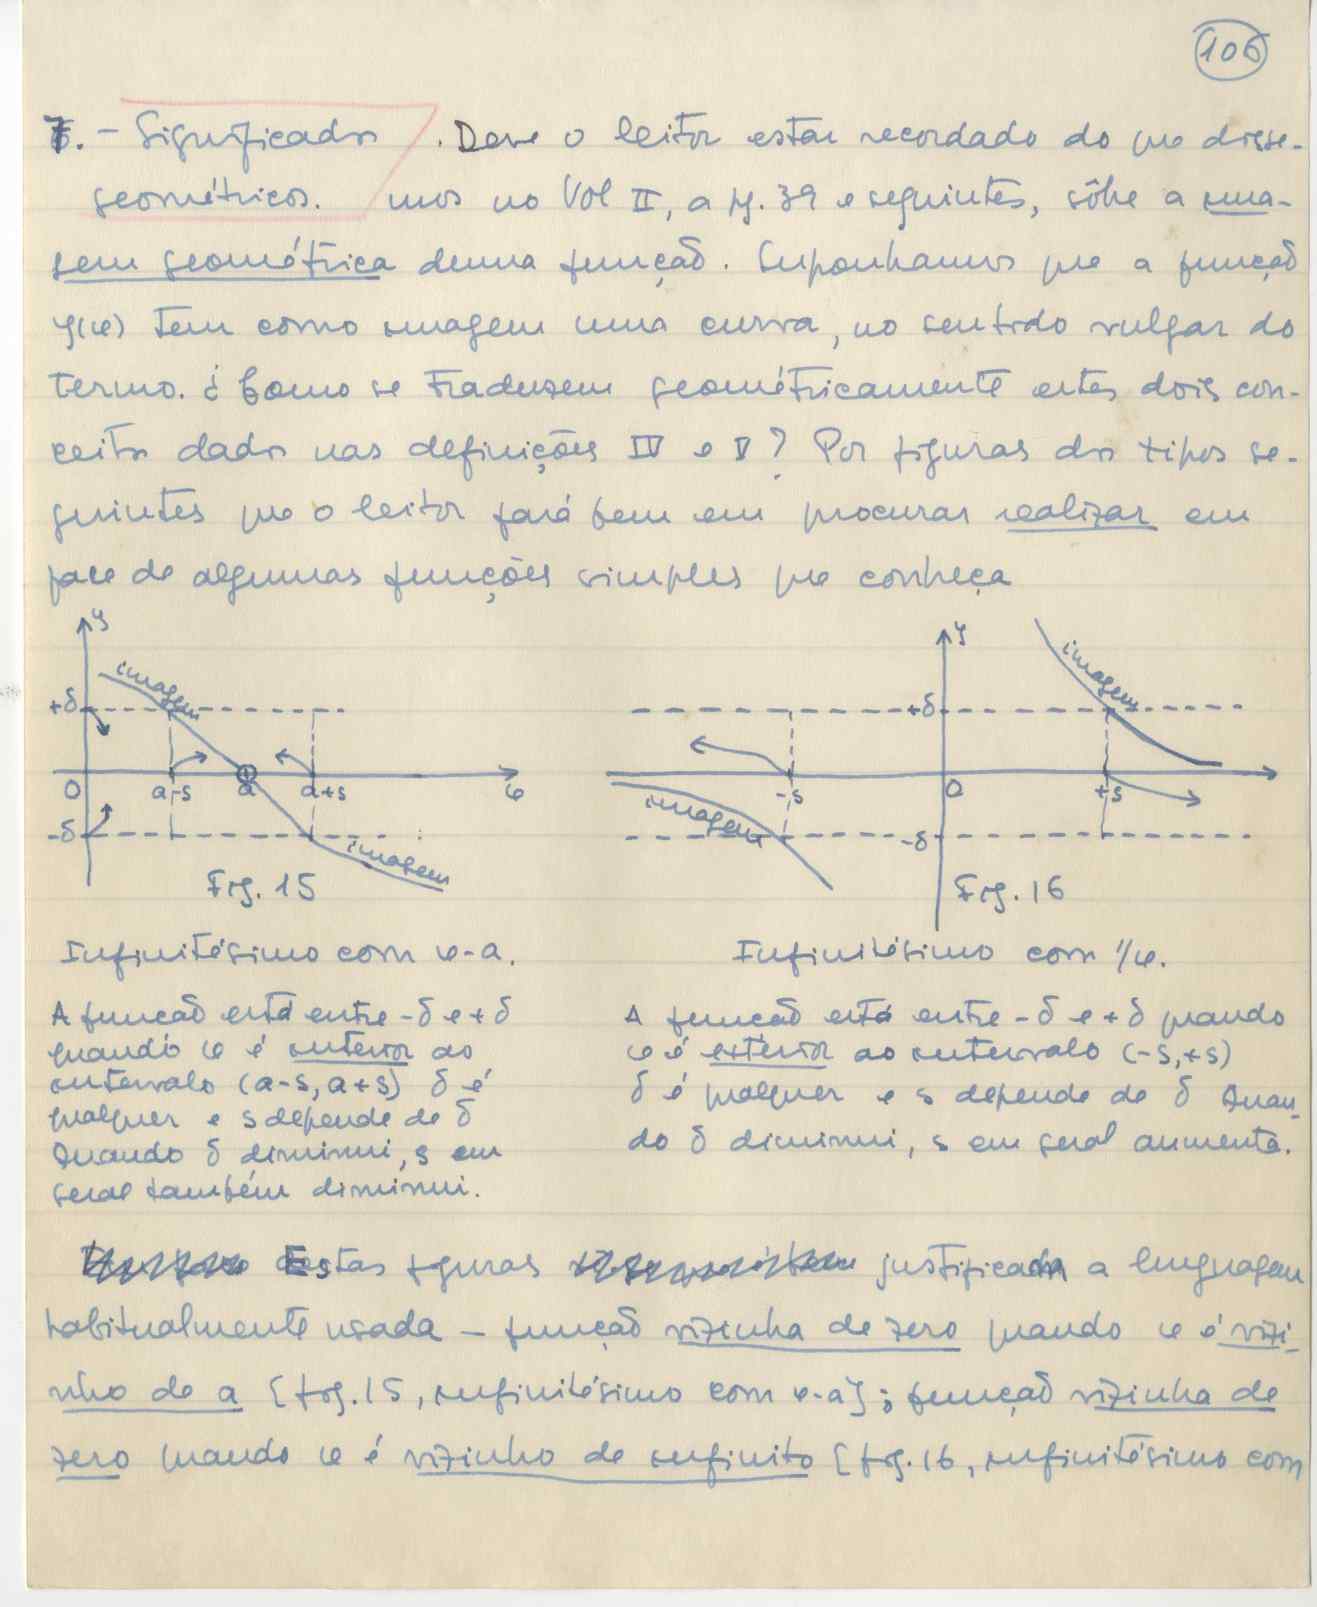 106
7. – Significados . Deve o leitor estar recordado do que disse-
geométricos. mos no Vol II, a pg. 39 e seguintes, sôbre a ima-
gem geométrica duma função. Suponhamos que a função
y(x) tem como imagem uma curva, no sentido vulgar do
termo. ¿ Como se traduzem geométricamente estes dois con-
ceitos dados nas definições IV e V? Por figuras dos tipos se-
guintes que o leitor fará bem em procurar realizar em
face de algumas funções simples que conheça
y
imagem
+δ
O a-s a a+s x
-δ
imagem
Fig. 15
y
imagem
+δ
-s O +s
imagem
-δ
Fig. 16
Infinitésimo com x-a.
A função está entre -δ e +δ
quando x é interior ao
intervalo (a-s, a+s) δ é
qualquer e s depende de δ
Quando δ diminui, s em
geral também diminui.
Infinitésimo com 1/x.
A função está entre -δ e +δ quando
x é exterior ao intervalo (-s,+s)
δ é qualquer e s depende de δ Quan-
do δ diminui, s em geral aumenta.
Estas figuras justificam a linguagem
habitualmente usada – função vizinha de zero quando x é vizi-
nho de a [fig. 15, infinitésimo com x-a]; função vizinha de
zero quando x é vizinho de infinito [fig. 16, infinitésimo com